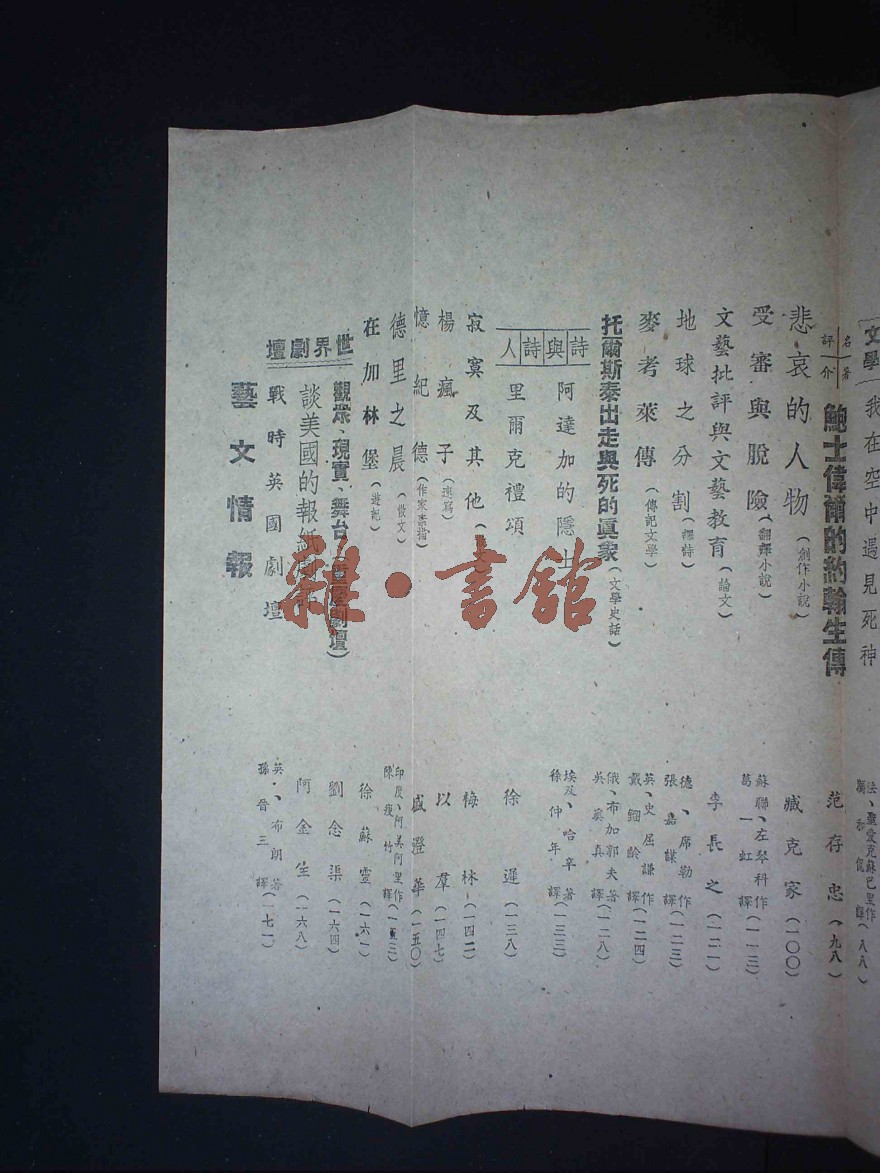 文學
我在空中遇見死神
法、聖愛克蘇巴里作
譯（八八）
名著評介
鮑士偉爾的約翰生傳
范存忠（九八）
悲哀的人物（創作小說）
臧克家（一〇〇）
受審與脫險（翻譯小說）
蘇聯、左琴科作
葛一虹譯（一一三）
文藝批評與文藝教育（論文）
李長之（一二一）
地球之分割（譯詩）
德、席勒作
張嘉謀譯（一二三）
麥考萊傳（傳記文學）
英、史屈謙作
戴鎦齡譯（一二四）
托爾斯泰出走與死的眞象（文學史話）
俄、布加郭夫著
吳奚真譯（一二八）
詩與詩人
阿達加的隱士
埃及、哈辛著
徐仲年譯（一三三）
里爾克禮頌
徐遲（一三八）
寂寞及其他
梅林（一四二）
楊瘋子（速寫）
以羣（一四七）
憶紀德（作家素描）
盛澄華（一五〇）
德里之晨（散文）
印度、阿美阿里作
陳瘦竹譯（一五三）
在加林堡（遊記）
徐蘇靈（一六一）
世界劇壇
觀眾、現實、舞台
劇壇）
劉念渠（一六四）
談美國的報紙劇
阿金生（一六八）
戰時英國劇壇
英、布朗著
孫晉三譯（一七一）
藝文情報
雜·書館